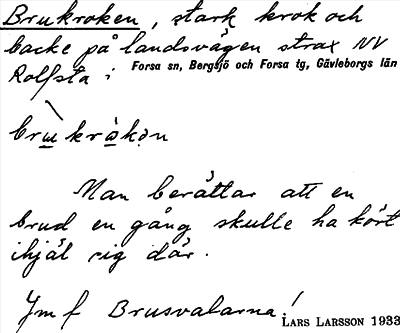 Brukroken, stark krok och
backe på landsvägen strax NV
Rolfsta i Forsa sn, Bergsjö och Forsa tg, Gävleborgs län
brukråkən
Man berättar att en
brud en gång skulle ha kört
ihjäl sig där.
Jmf Brusvalarna!
LARS LARSSON 1933